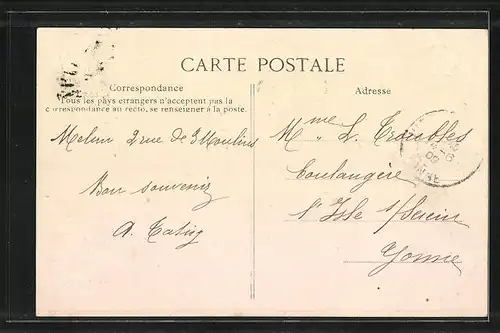 CARTE POSTALE
Correspondance
Tous les pays étrangers n'acceptent pas la
correspondance au recto, se renseigner à la poste.
Melun 2 rue de 3 Moulins
Bon souvenir
A.
Adresse
Mme L.
boulangère
l'Isle s/Serein
Yonne